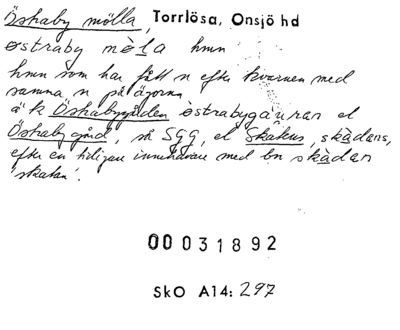 Östraby mölla, Torrlösa, Onsjö hd
østraby mø̀la hmn
hmn som har fått n efter kvarnen med
samma n på ägorna
ä k Östrabygården østrabygaúran el
Östraby gård, så SGG, el Skakus, skàdans,
efter en tidigare innehavare med bn skàdan
'skatan'.
00031892
SkO A14: 297